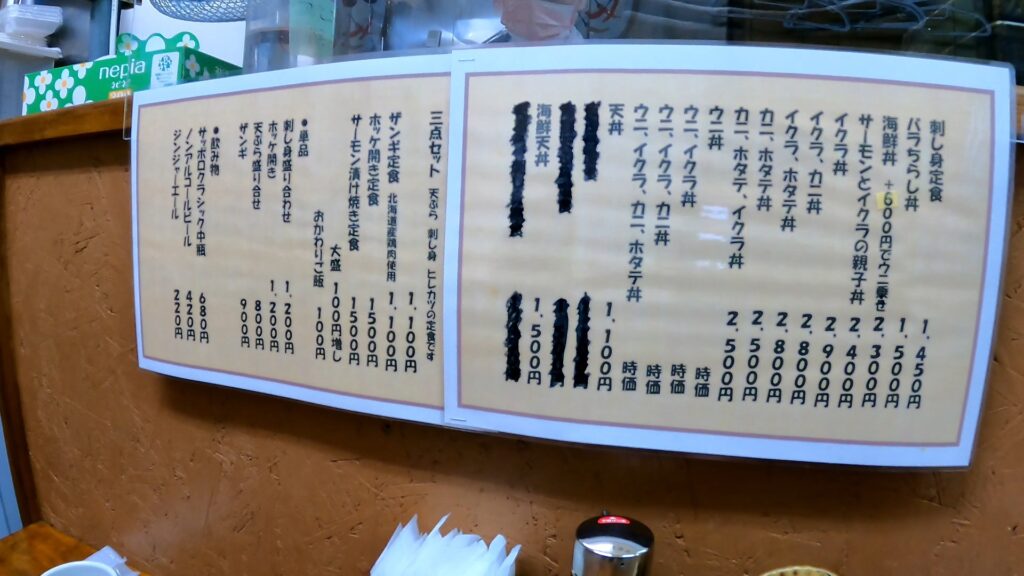 刺し身定食 1,450円
バラちらし丼 1,500円
海鮮丼 +600円でウニ乗せ 2,300円
サーモンとイクラの親子丼 2,400円
イクラ丼 2,900円
イクラ、カニ丼 2,800円
イクラ、ホタテ丼 2,800円
カニ、ホタテ丼 2,500円
カニ、ホタテ、イクラ丼 2,500円
ウニ丼 時価
ウニ、イクラ丼 時価
ウニ、イクラ、カニ丼 時価
ウニ、イクラ、カニ、ホタテ丼 時価
天丼 1,100円
海鮮天丼 1,500円
三点セット 天ぷら 刺し身 ヒレカツの定食です
1,100円
ザンギ定食 北海道産鶏肉使用 1,100円
ホッケ開き定食 1,500円
サーモン漬け焼き定食 1,500円
大盛 100円増し
おかわりご飯 100円
●単品
刺し身盛り合わせ 1,200円
ホッケ開き 1,200円
天ぷら盛り合せ 800円
ザンギ 900円
●飲み物
サッポロクラシック中瓶 680円
ノンアルコールビール 420円
ジンジャーエール 220円
nepia